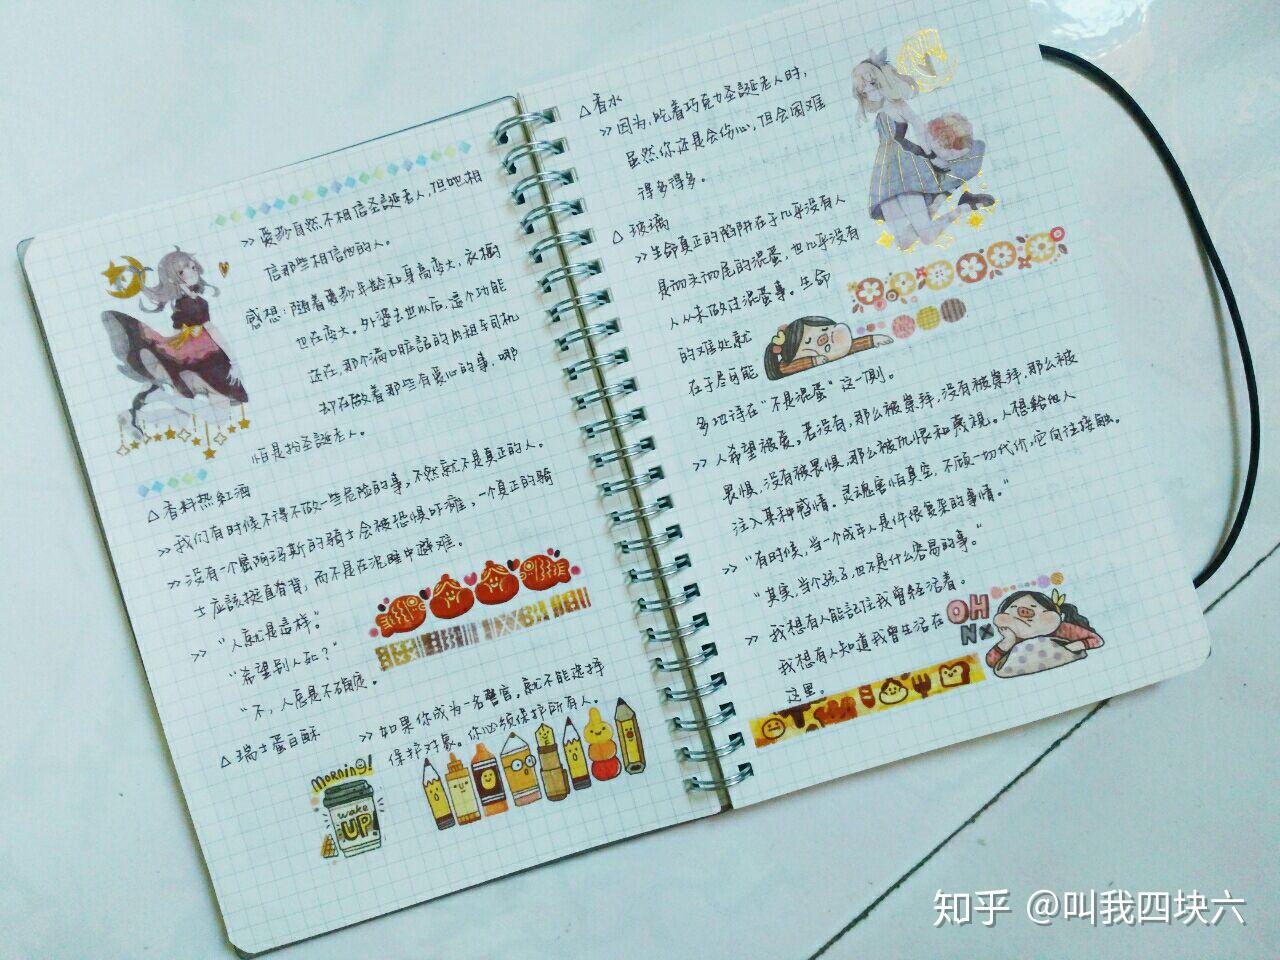 >> 愛莎自然不相信圣誕老人,但她相
信那些相信他的人。
感想:随着愛莎年龄和身高变大,衣橱
也在变大。外婆去世以后,這个功能
还在,那个满口脏話的出租车司机
却在做着那些有爱心的事,哪
怕是扮圣誕老人。
△ 香料热紅酒
>> 我们有时候不得不做一些危险的事,不然就不是真正的人。
>> 没有一个密阿玛斯的骑士会被恐惧吓瘫,一个真正的骑
士应該挺直脊背,而不是在泥睡中避难。
>> "人就是這样。"
"希望别人死?"
"不,人总是不确定。
△ 瑞士蛋白酥
>> 如果你成为一名警官,就不能选择
保护对象。你必须保护所有人。
MORNING!
wake
UP
△ 香水
>> 因为,吃着巧克力圣誕老人时,
虽然你还是会伤心,但会困难
得多得多。
△ 玻璃
>> 生命真正的陷阱在于几乎没有人
是彻头彻尾的混蛋,也几乎没有
人从未做过混蛋事。生命
的难处就
在于尽可能
多地待在"不是混蛋"这一側。
>> 人希望被爱。若没有,那么被崇拜,没有被崇拜,那么被
畏惧,没有被畏惧,那么被仇恨和蔑視。人想給他人
注入某种感情。灵魂害怕真空,不顾一切代价,它向往接触。
>> "有时候,当一个成年人是件很复杂的事情。"
"其实,当个孩子,也不是什么容易的事。"
>> 我想有人能記住我曾经活着。
我想有人知道我曾生活在
这里。
OH
NX
知乎 @叫我四块六